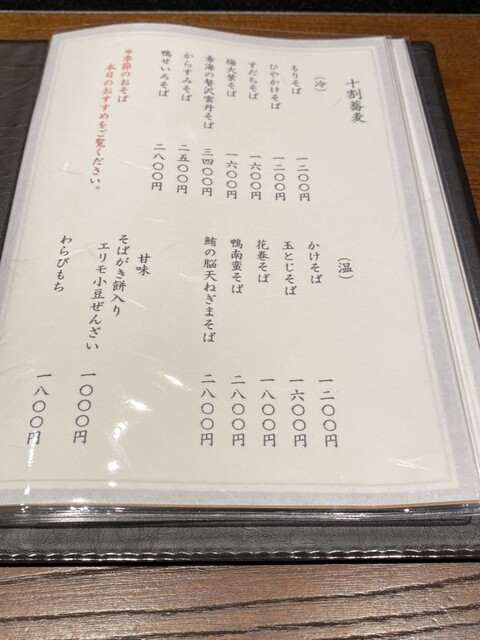 十割蕎麦
（冷）
もりそば 一二〇〇円
ひやかけそば 一二〇〇円
すだちそば 一六〇〇円
梅大葉そば 一六〇〇円
寿海の贅沢雲丹そば 三四〇〇円
からすみそば 二五〇〇円
鴨せいろそば 二八〇〇円
※季節のおそば
本日のおすすめをご覧ください。
（温）
かけそば 一二〇〇円
玉とじそば 一六〇〇円
花巻そば 一八〇〇円
鴨南蛮そば 二八〇〇円
鮪の脳天ねぎまそば 二八〇〇円
甘味
そばがき餅入り
エリモ小豆ぜんざい 一〇〇〇円
わらびもち 一八〇〇円